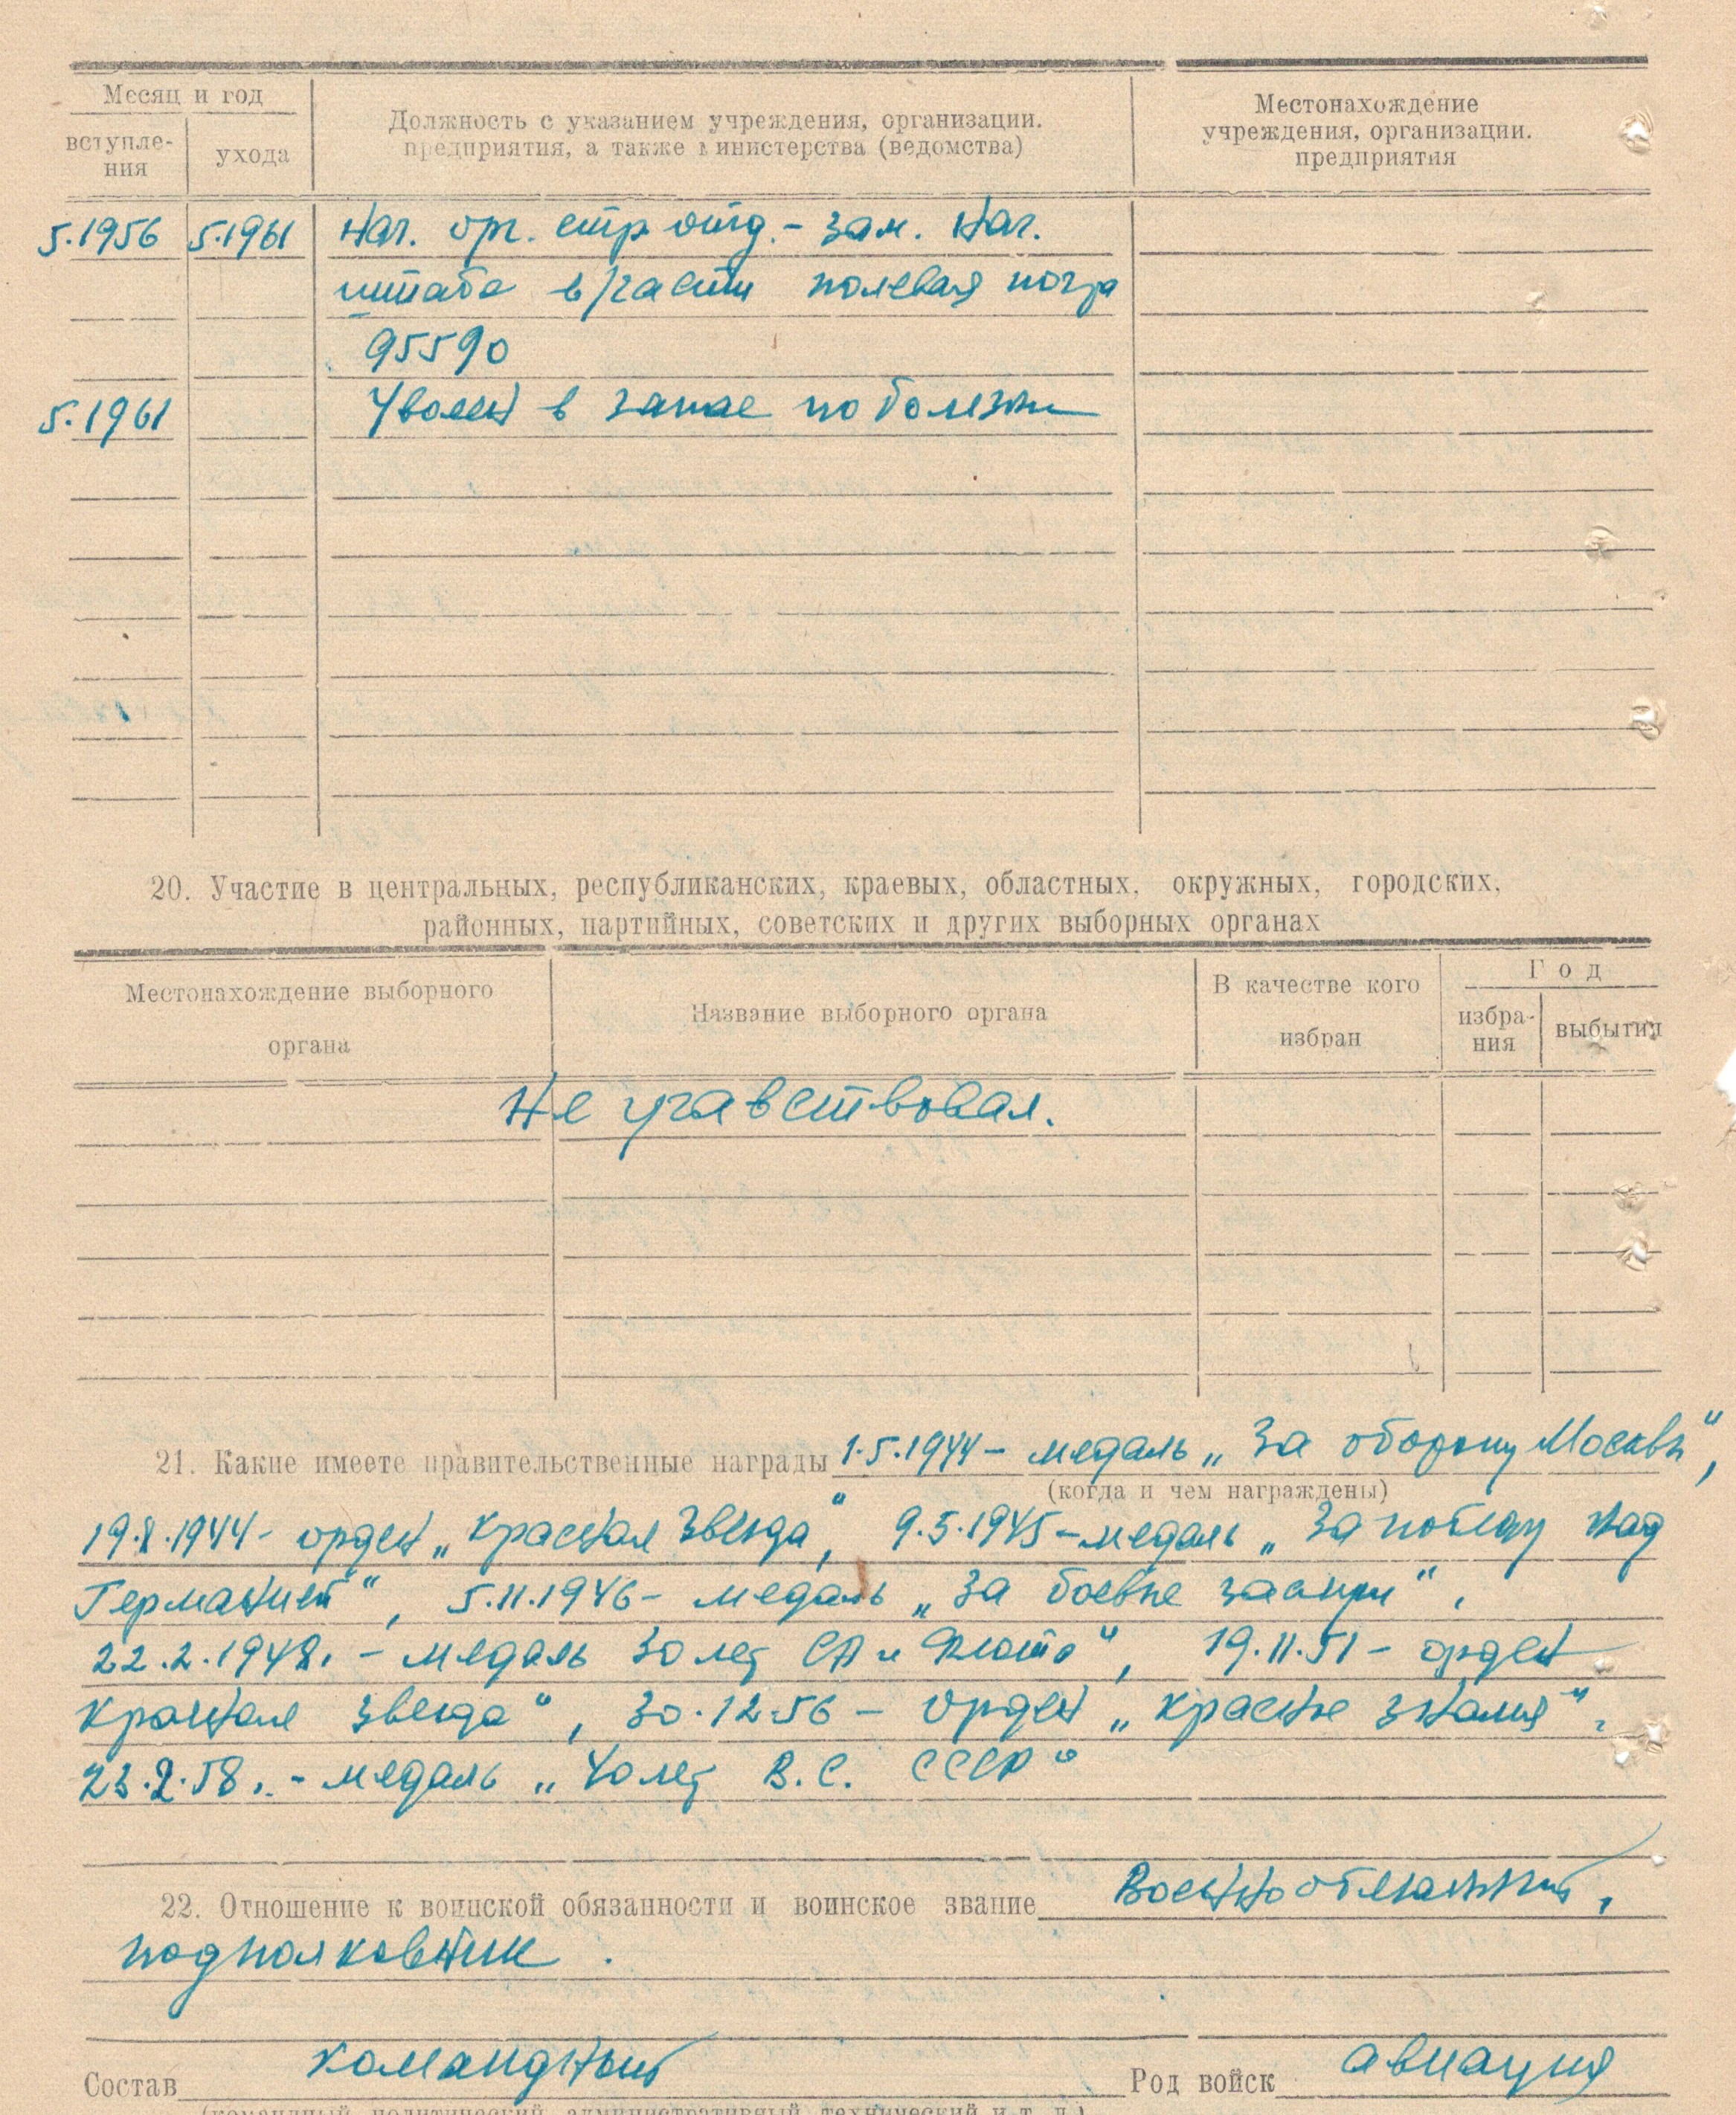 Месяц и год
вступле-
ния
ухода
Должность с указанием учреждения, организации.
предприятия, а также министерства (ведомства)
Местонахождение
учреждения, организации.
предприятия
5.1956 5.1961 Нач. орг. стр отд. - зам. нач.
штаба в/части полевая почта
95590
5.1961 Уволен в запас по болезни
20. Участие в центральных, республиканских, краевых, областных, окружных, городских,
районных, партийных, советских и других выборных органах
Местонахождение выборного
органа
Название выборного органа
В качестве кого
избран
Год
избра-
ния
выбытия
Не учавствовал.
21. Какие имеете правительственные награды 1.5.1944 - медаль „За оборону Москвы",
(когда и чем награждены)
19.8.1944 - орден „Красная Звезда", 9.5.1945 - медаль „За победу над
Германией", 5.11.1946 - медаль „За боевые заслуги",
22.2.1948. - медаль 30 лет СА и Флота", 19.11.51 - орден
Красная звезда", 30.12.56 - орден „Красное знамя",
23.2.58. - медаль „40 лет В.С. СССР"
22. Отношение к воинской обязанности и воинское звание Военнообязанный,
подполковник.
Состав командный Род войск авиация
(командный, политический, административный, технический и т. д.)